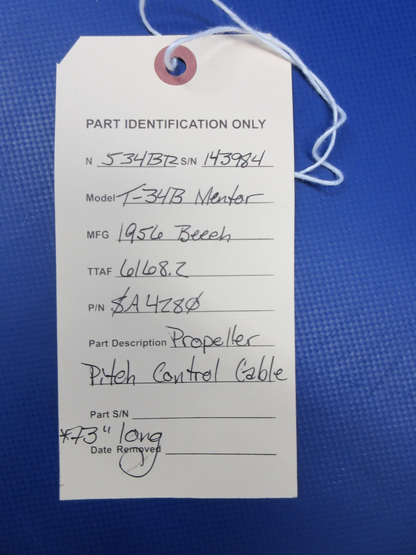 PART IDENTIFICATION ONLY
N 534BR S/N 143984
Model T-34B Mentor
MFG 1956 Beech
TTAF 6168.2
P/N $A4280
Part Description Propeller
Pitch Control Cable
Part S/N
*73" long
Date Removed